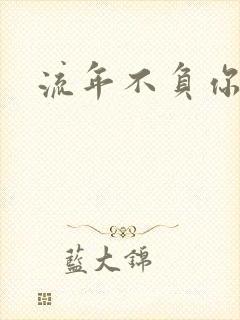 流年不負你
藍大錦